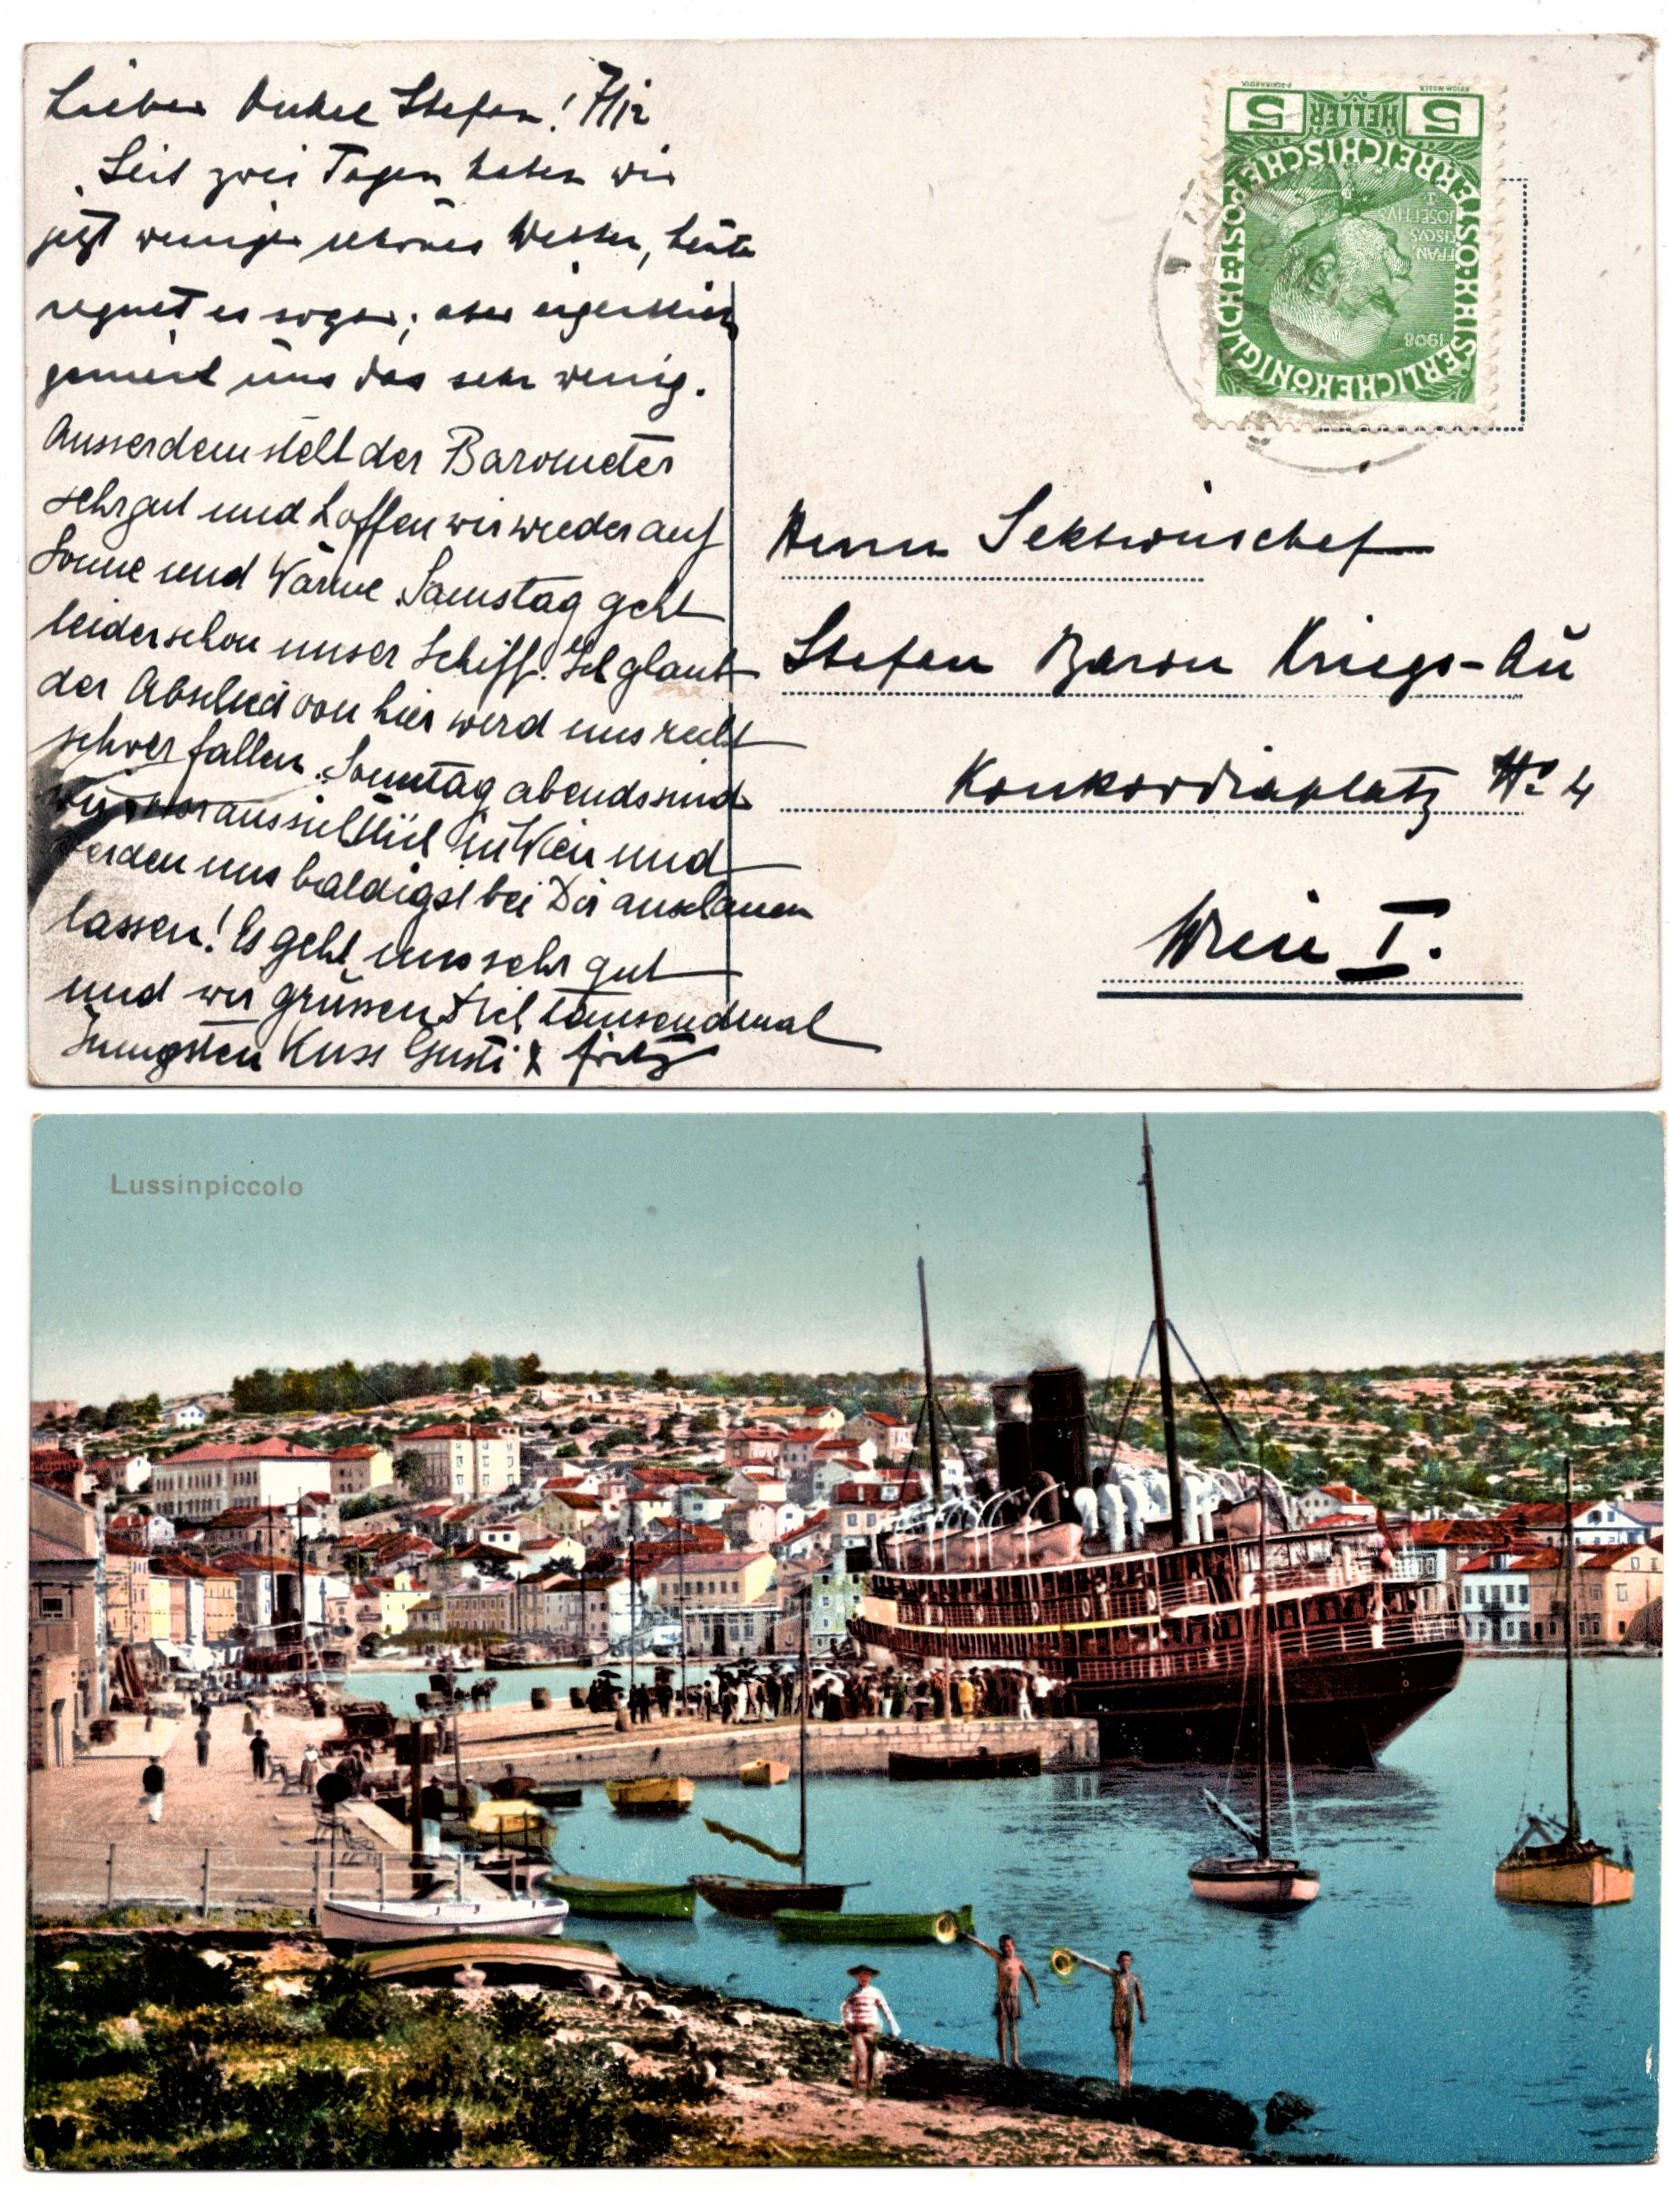 Lieber Onkel Stefan! 7/12
Seit zwei Tagen haben wir
jetzt weniger schönes Wetter, heute
regnet es sogar; aber eigentlich
geniert uns das sehr wenig.
Ausserdem steht der Barometer
sehr gut und hoffen wir wieder auf
Sonne und Wärme. Samstag geht
leider schon unser Schiff. Ich glaub
der Abschied von hier wird uns recht
schwer fallen. Sonntag abends sind
wir voraussichtlich in Wien und
werden uns baldigst bei Dir anschauen
lassen! Es geht uns sehr gut
und wir grüssen Dich tausendmal
Innigsten Kuss Gusti & Fritz
5 HELLER 5
KAISERLICHE KÖNIGLICHE ÖSTERREICHISCHE
FRAN
CISCVS
JOSEPHVS
I
1908
Herrn Sektionschef
Stefan Baron Kriegs-Au
Konkordiaplatz No 4
Wien I.
Lussinpiccolo